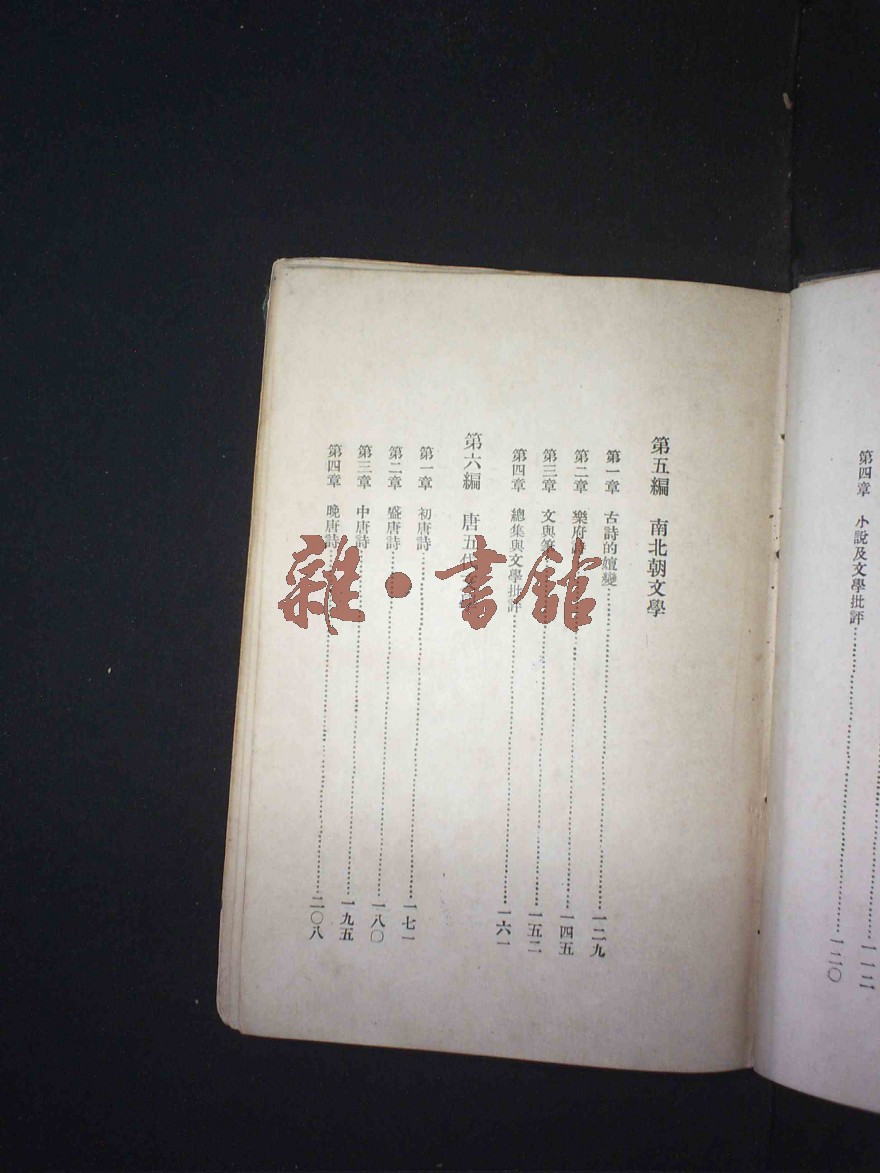 一一二
第四章 小說及文學批評……一二〇
第五編 南北朝文學
第一章 古詩的嬗變……一二九
第二章 樂府……一四五
第三章 文與……一五二
第四章 總集與文學批評……一六一
第六編 唐五代
第一章 初唐詩……一七一
第二章 盛唐詩……一八〇
第三章 中唐詩……一九五
第四章 晚唐詩……二〇八
雜·書館